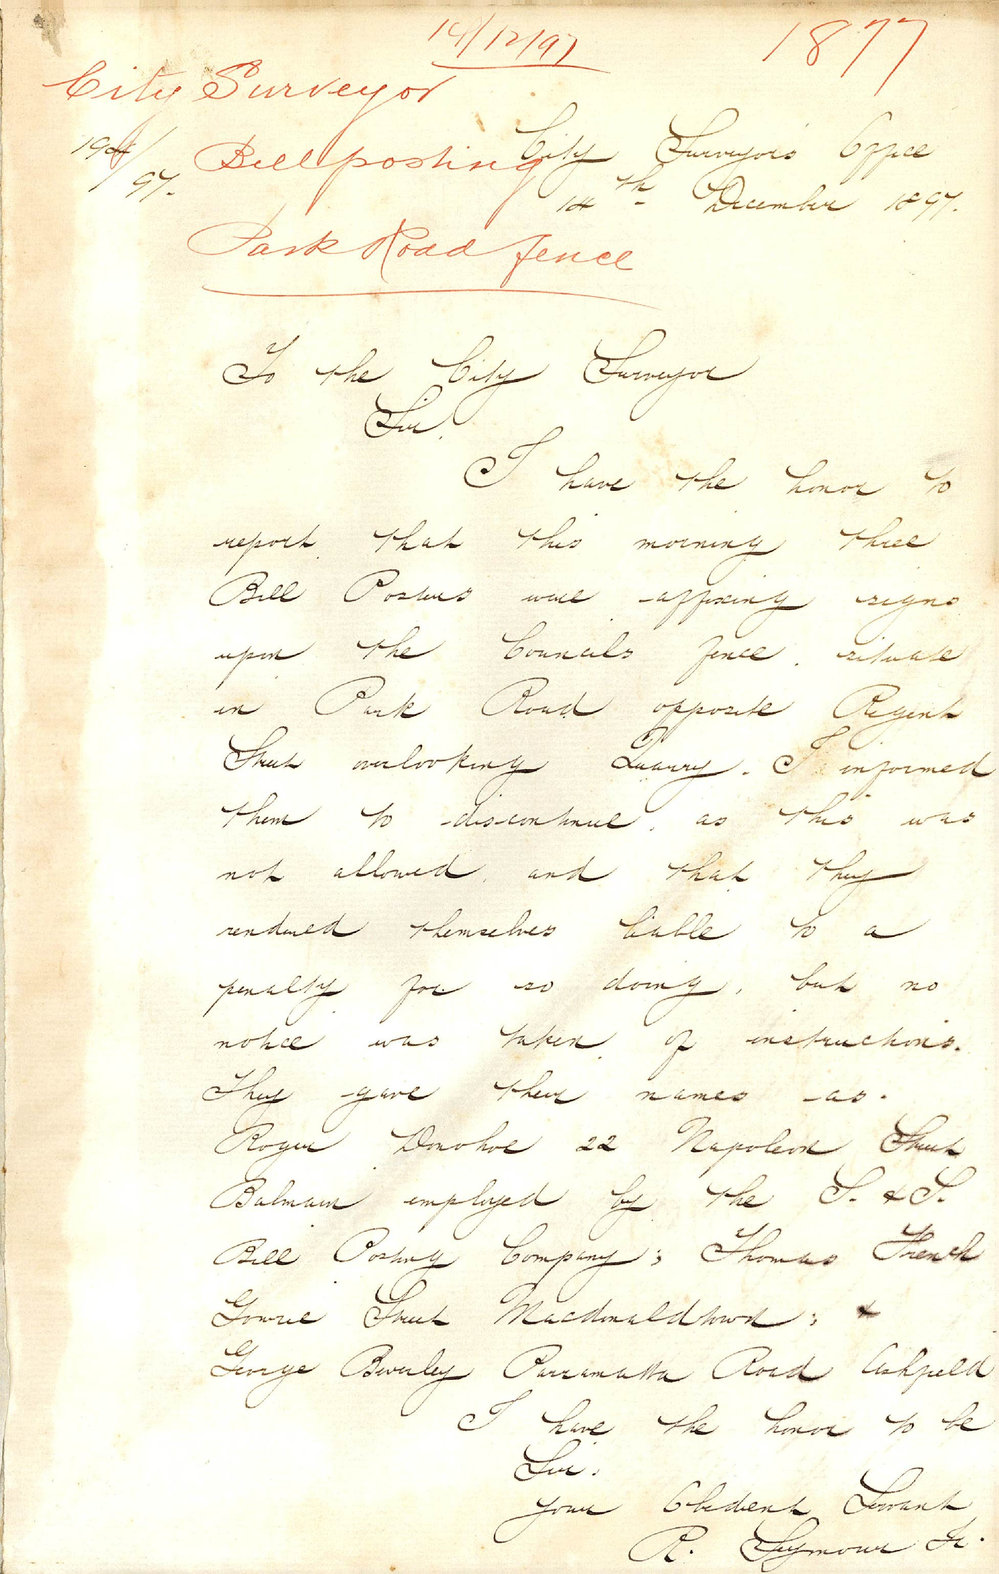 14/12/97
1877
City Surveyor
Billposting
Park Road fence
City Surveyors Office
14th December 1897.
To the City Surveyor
Sir,
I have the honor to
report that this morning three
Bill Posters were affixing signs
upon the Councils fence, situate
in Park Road opposite Regent
Street overlooking Quarry. I informed
them to discontinue, as this was
not allowed, and that they
rendered themselves liable to a
penalty for so doing, but no
notice was taken of instructions.
They gave their names as.
Roger Donohoe 22 Napoleon Street
Balmain employed by the S. & S.
Bill Posting Company; Thomas French
Gowrie Street Macdonaldtown; &
George Beverley Parramatta Road Ashfield
I have the honor to be
Sir.
Your Obedient Servant
R. Seymour Jr.